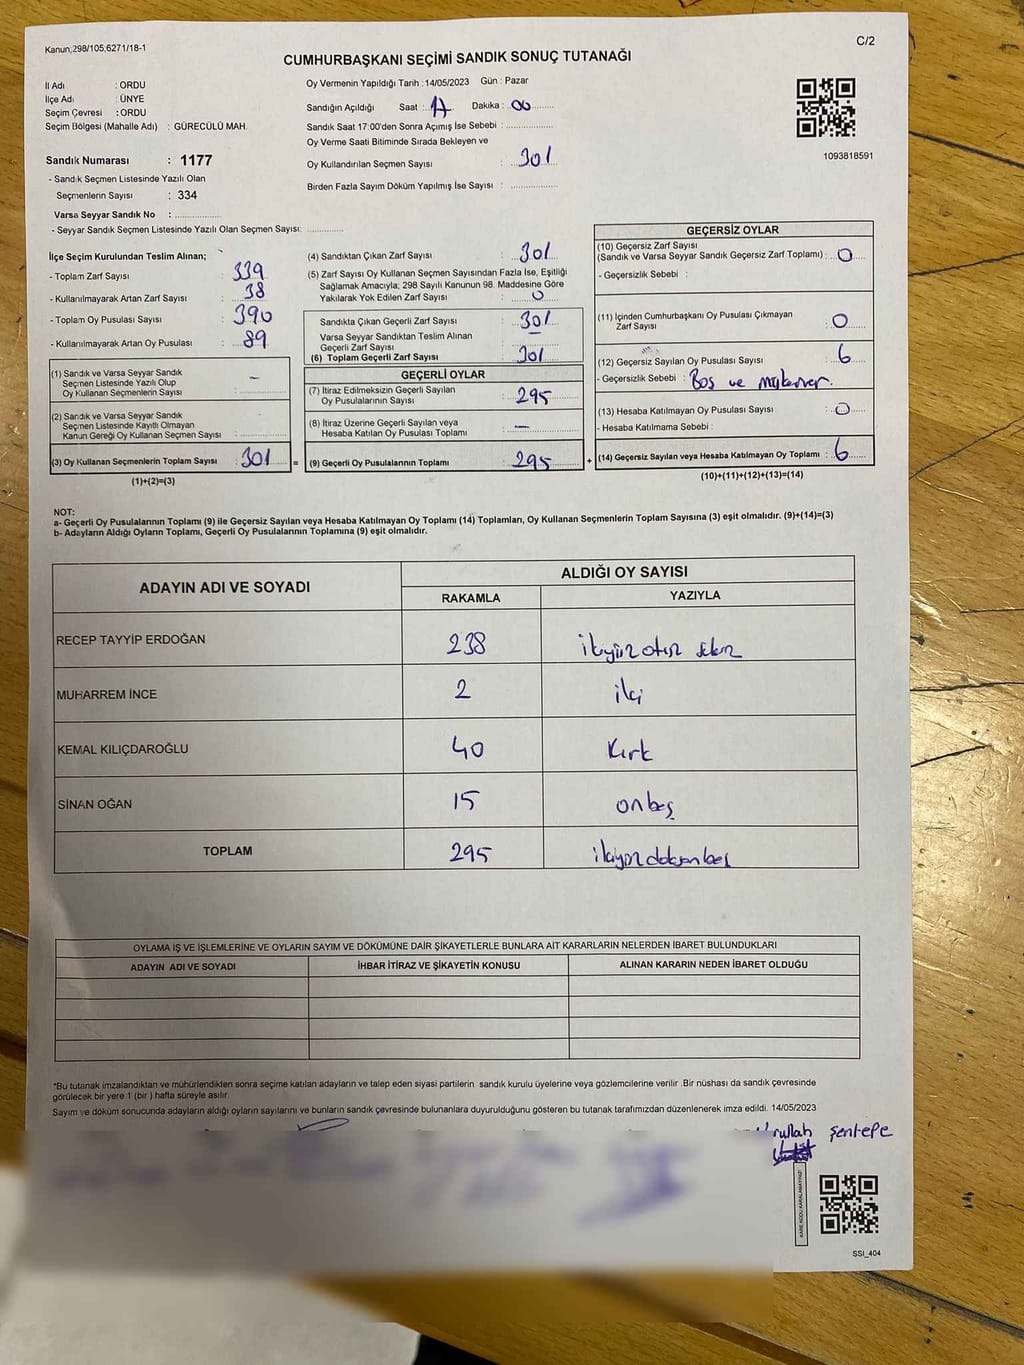 Kanun;298/105,6271/18-1
C/2
CUMHURBAŞKANI SEÇİMİ SANDIK SONUÇ TUTANAĞI
İl Adı : ORDU
İlçe Adı : ÜNYE
Seçim Çevresi : ORDU
Seçim Bölgesi (Mahalle Adı) : GÜRECÜLÜ MAH.
Sandık Numarası : 1177
- Sandık Seçmen Listesinde Yazılı Olan
Seçmenlerin Sayısı : 334
Varsa Seyyar Sandık No :
- Seyyar Sandık Seçmen Listesinde Yazılı Olan Seçmen Sayısı:
Oy Vermenin Yapıldığı Tarih : 14/05/2023 Gün : Pazar
Sandığın Açıldığı Saat : 17 Dakika : 00
Sandık Saat 17:00'den Sonra Açımış İse Sebebi :
Oy Verme Saati Bitiminde Sırada Bekleyen ve
Oy Kullandırılan Seçmen Sayısı : 301
Birden Fazla Sayım Döküm Yapılmış İse Sayısı :
1093818591
İlçe Seçim Kurulundan Teslim Alınan;
- Toplam Zarf Sayısı : 339
- Kullanılmayarak Artan Zarf Sayısı : 38
- Toplam Oy Pusulası Sayısı : 390
- Kullanılmayarak Artan Oy Pusulası : 89
(1) Sandık ve Varsa Seyyar Sandık
Seçmen Listesinde Yazılı Olup
Oy Kullanan Seçmenlerin Sayısı : -
(2) Sandık ve Varsa Seyyar Sandık
Seçmen Listesinde Kayıtlı Olmayan
Kanun Gereği Oy Kullanan Seçmen Sayısı :
(3) Oy Kullanan Seçmenlerin Toplam Sayısı : 301
(1)+(2)=(3)
=
(4) Sandıktan Çıkan Zarf Sayısı : 301
(5) Zarf Sayısı Oy Kullanan Seçmen Sayısından Fazla İse, Eşitliği
Sağlamak Amacıyla; 298 Sayılı Kanunun 98. Maddesine Göre
Yakılarak Yok Edilen Zarf Sayısı : 0
Sandıkta Çıkan Geçerli Zarf Sayısı : 301
Varsa Seyyar Sandıktan Teslim Alınan
Geçerli Zarf Sayısı : -
(6) Toplam Geçerli Zarf Sayısı : 301
GEÇERLİ OYLAR
(7) İtiraz Edilmeksizin Geçerli Sayılan
Oy Pusulalarının Sayısı : 295
(8) İtiraz Üzerine Geçerli Sayılan veya
Hesaba Katılan Oy Pusulası Toplamı : -
(9) Geçerli Oy Pusulalarının Toplamı : 295
+
GEÇERSİZ OYLAR
(10) Geçersiz Zarf Sayısı
(Sandık ve Varsa Seyyar Sandık Geçersiz Zarf Toplamı) : 0
- Geçersizlik Sebebi :
(11) İçinden Cumhurbaşkanı Oy Pusulası Çıkmayan
Zarf Sayısı : 0
(12) Geçersiz Sayılan Oy Pusulası Sayısı : 6
- Geçersizlik Sebebi : Boş ve mükerrer.
(13) Hesaba Katılmayan Oy Pusulası Sayısı : 0
- Hesaba Katılmama Sebebi :
(14) Geçersiz Sayılan veya Hesaba Katılmayan Oy Toplamı : 6
(10)+(11)+(12)+(13)=(14)
NOT:
a- Geçerli Oy Pusulalarının Toplamı (9) ile Geçersiz Sayılan veya Hesaba Katılmayan Oy Toplamı (14) Toplamları, Oy Kullanan Seçmenlerin Toplam Sayısına (3) eşit olmalıdır. (9)+(14)=(3)
b- Adayların Aldığı Oyların Toplamı, Geçerli Oy Pusulalarının Toplamına (9) eşit olmalıdır.
ADAYIN ADI VE SOYADI ALDIĞI OY SAYISI
RAKAMLA YAZIYLA
RECEP TAYYİP ERDOĞAN 238 ikiyüz otuz sekiz
MUHARREM İNCE 2 iki
KEMAL KILIÇDAROĞLU 40 Kırk
SİNAN OĞAN 15 onbeş
TOPLAM 295 ikiyüz doksan beş
OYLAMA İŞ VE İŞLEMLERİNE VE OYLARIN SAYIM VE DÖKÜMÜNE DAİR ŞİKAYETLERLE BUNLARA AİT KARARLARIN NELERDEN İBARET BULUNDUKLARI
ADAYIN ADI VE SOYADI İHBAR İTİRAZ VE ŞİKAYETİN KONUSU ALINAN KARARIN NEDEN İBARET OLDUĞU
*Bu tutanak imzalandıktan ve mühürlendikten sonra seçime katılan adayların ve talep eden siyasi partilerin sandık kurulu üyelerine veya gözlemcilerine verilir .Bir nüshası da sandık çevresinde
görülecek bir yere 1 (bir ) hafta süreyle asılır.
Sayım ve döküm sonucunda adayların aldığı oyların sayılarını ve bunların sandık çevresinde bulunanlara duyurulduğunu gösteren bu tutanak tarafımızdan düzenlenerek imza edildi. 14/05/2023
rullah Şentepe
KARE KODU KARALAMAYINIZ!
SSI_404